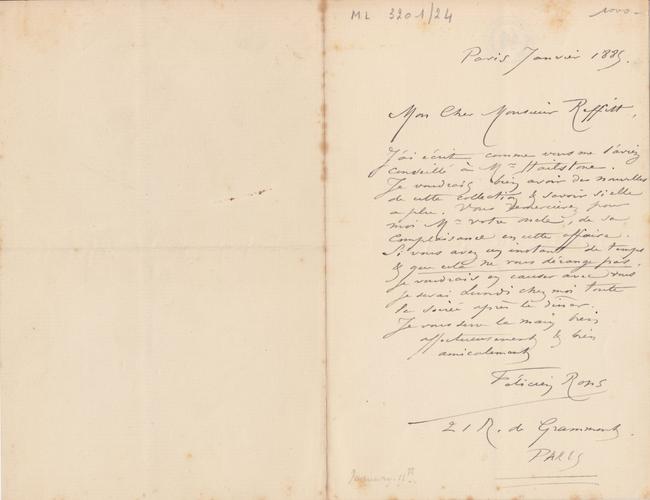 ML 3201/24
1000-
Paris Janvier 1885.
Mon Cher Monsieur
J'ai écrit comme vous me l'aviez
conseillé à Mr Hailstone.
Je voudrais bien avoir des nouvelles
de cette collection & savoir si elle
a plu. Vous remercierez pour
moi Mr votre oncle, de sa
complaisance en cette affaire.
Si vous avez un instant de temps
& que cela ne vous dérange pas.
je voudrais en causer avec vous
je serai Lundi chez moi toute
la soirée après le dîner.
Je vous serre la main bien
affectueusement & bien
amicalement
Félicien Rops
21 R. de Grammont.
PARIS
January 11th